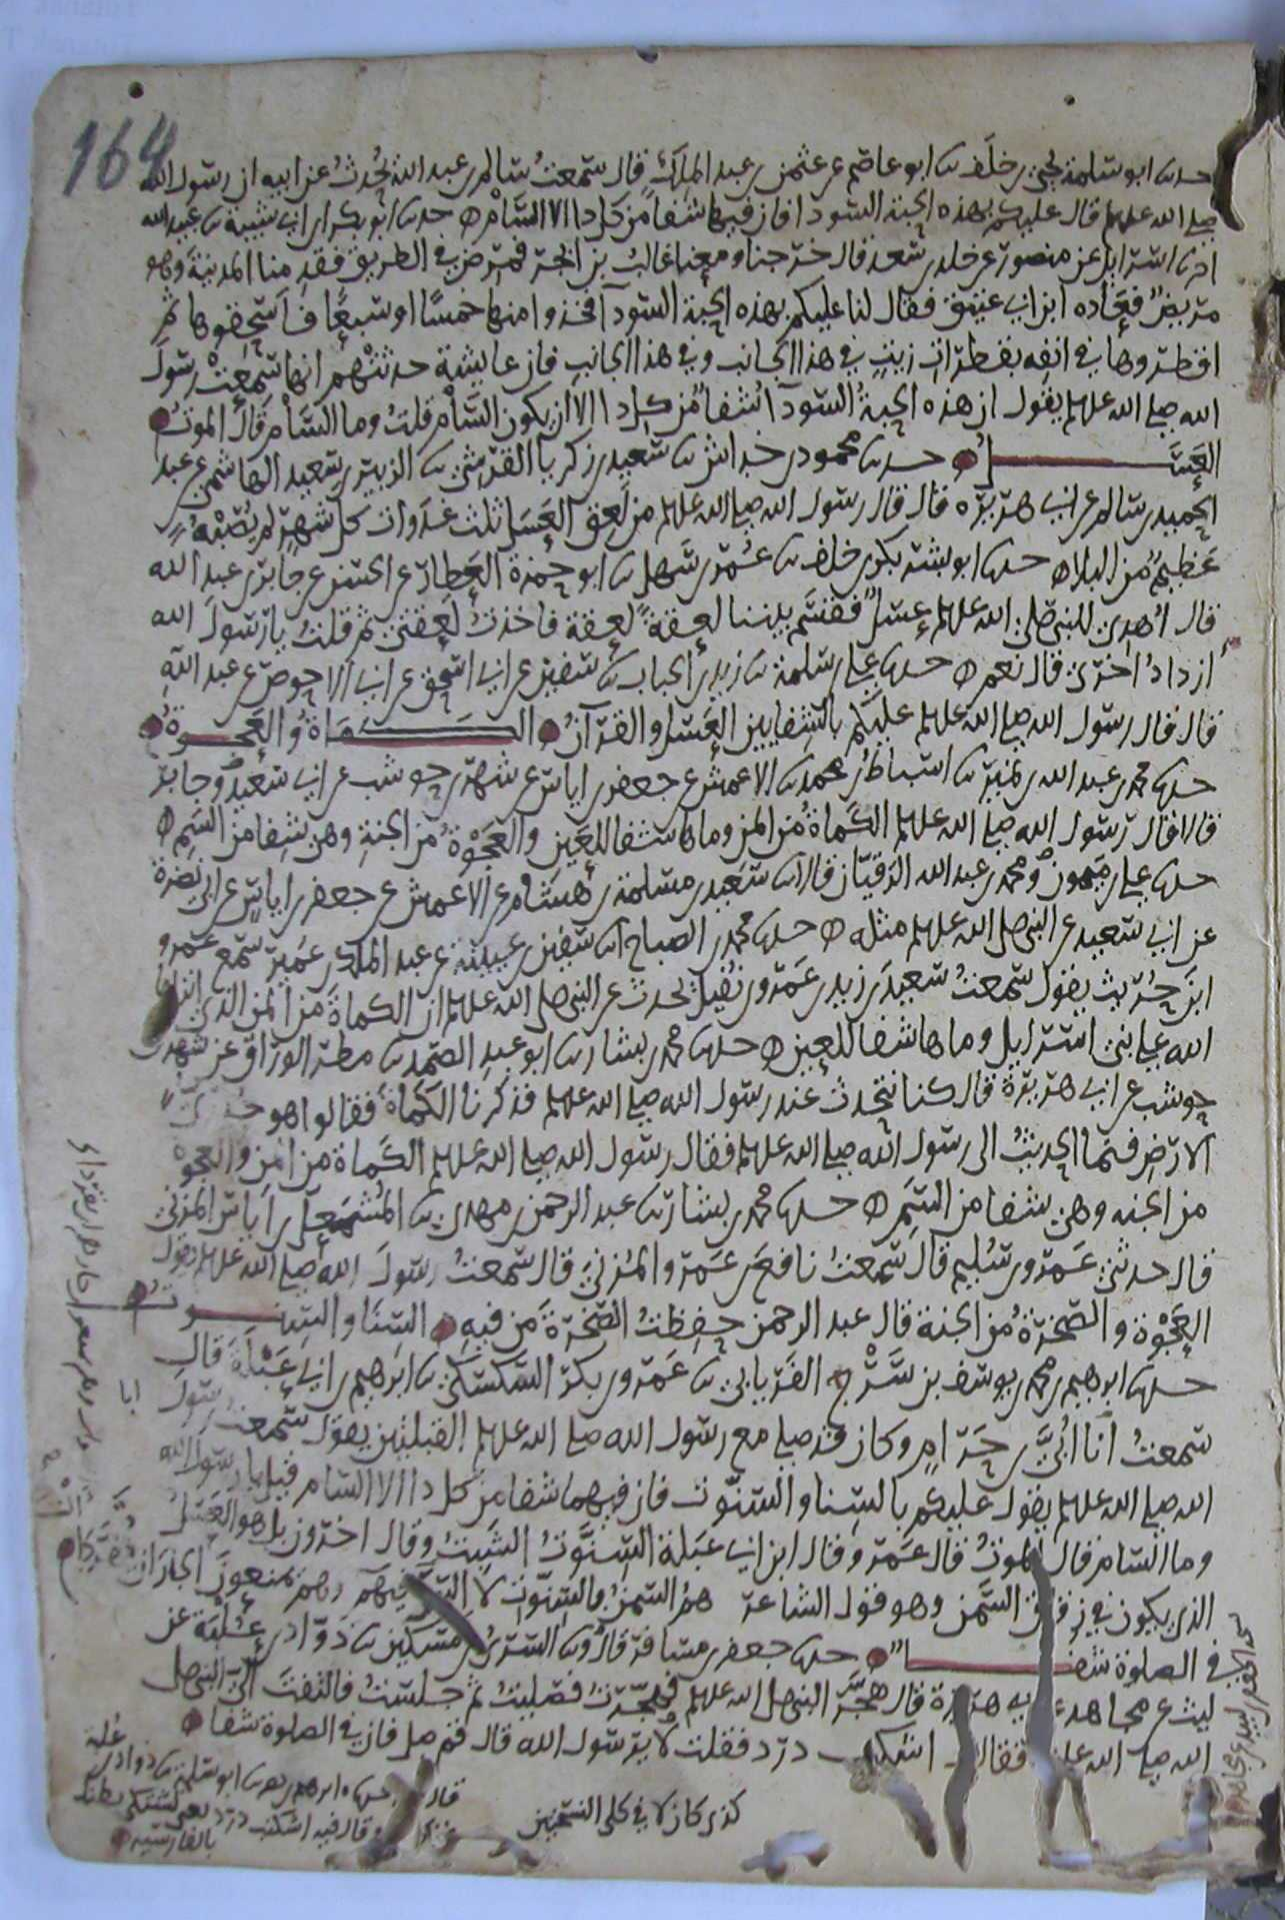 164
حدثنا ابو سلمة يحيى بن خلف ثنا ابو عاصم عن عثمن بن عبد الملك قال سمعت سالم بن عبد الله يحدث عن ابيه ان رسول الله
صلى الله عليه وسلم قال عليكم بهذه الحبة السودا فان فيها شفا من كل دا الا السام حدثنا ابو بكر بن ابي شيبة ثنا عبيد الله
انا اسرايل عن منصور عن خلد بن سعد قال خرجنا ومعنا غالب بن ابجر فمرض في الطريق فقدمنا المدينة وهو
مريض فعاده ابن ابي عتيق فقال لنا عليكم بهذه الحبة السودا فخذوا منها خمسا او سبعا فاسحقوها ثم
اقطروها في انفه بقطرات زيت في هذا الجانب وفي هذا الجانب فان عايشة حدثتهم انها سمعت رسول
الله صلى الله عليه وسلم يقول ان هذه الحبة السودآ شفا من كل دا الا ان يكون السام قلت وما السام قال الموت
العسل حدثنا محمود بن خداش ثنا سعيد بن زكريا القرشي ثنا الزبير بن سعيد الهاشمي عن عبد
الحميد بن سالم عن ابي هريرة قال قال رسول الله صلى الله عليه وسلم من لعق العسل ثلث غدوات كل شهر لم يصبه
عظيم من البلا حدثنا ابو بشر بكر بن خلف ثنا عمر بن سهل ثنا ابو حمزة العطار عن الحسن عن جابر بن عبد الله
قال اهدي للنبي صلى الله عليه وسلم عسل فقسم بيننا لعقة لعقة فاخذت لعقتي ثم قلت يا رسول الله
ازداد اخرى قال نعم حدثنا علي بن سلمة ثنا زيد بن الحباب ثنا سفين عن ابي اسحق عن ابي الاحوص عن عبد الله
قال قال رسول الله صلى الله عليه وسلم عليكم بالشفايين العسل والقرآن الكماة والعجوة
حدثنا محمد بن عبد الله بن نمير ثنا اسباط بن محمد ثنا الاعمش عن جعفر بن اياس عن شهر بن حوشب عن ابي سعيد وجابر
قالا قال رسول الله صلى الله عليه وسلم الكماة من المن وماها شفا للعين والعجوة من الجنة وهي شفا من السم
حدثنا علي بن ميمون ومحمد بن عبد الله الرقيان قالا ثنا سعيد بن مسلمة بن هشام عن الاعمش عن جعفر بن اياس عن ابي نضرة
عن ابي سعيد عن النبي صلى الله عليه وسلم مثله حدثنا محمد بن الصباح انا سفين بن عيينة عن عبد الملك بن عمير سمع عمرو
ابن حريث يقول سمعت سعيد بن زيد بن عمرو بن نفيل يحدث عن النبي صلى الله عليه وسلم ان الكماة من المن الذي انزل
الله على بني اسرايل وماها شفا للعين حدثنا محمد بن بشار ثنا ابو عبد الصمد ثنا مطر الوراق عن شهر بن
حوشب عن ابي هريرة قال كنا نتحدث عند رسول الله صلى الله عليه وسلم فذكرنا الكماة فقالوا هو
الارض فنما الحديث الى رسول الله صلى الله عليه وسلم فقال رسول الله صلى الله عليه وسلم الكماة من المن والعجوة
من الجنه وهي شفا من السم حدثنا محمد بن بشار ثنا عبد الرحمن بن مهدي ثنا المشمعل بن اياس المزني
قال حدثني عمرو بن سليم قال سمعت رافع بن عمرو المزني قال سمعت رسول الله صلى الله عليه وسلم يقول
العجوة والصخرة من الجنة قال عبد الرحمن حفظت الصخرة من فيه السنا والسنوت
حدثنا ابرهيم بن محمد بن يوسف بن سرج الفريابي ثنا عمرو بن بكر السكسكي ثنا ابرهيم بن ابي عبلة قال
سمعت انا ابي بن حرام وكان قد صلى مع رسول الله صلى الله عليه وسلم القبلتين يقول سمعت رسول
الله صلى الله عليه وسلم يقول عليكم بالسنا والسنوت فان فيهما شفا من كل دا الا السام قيل يا رسول الله
وما السام قال الموت قال عمرو قال ابن ابي عبلة السنوت الشبت وقال اخرون بل هو العسل
الذي يكون في زقاق السمن وهو قول الشاعر هم السمن بالسنوت لا الس فيهم وهم يمنعون الجار ان يقردا
في الصلوة شفا حدثنا جعفر بن مسافر قال ثنا السري بن مسكين ثنا ذواد بن علبة عن
ليث عن مجاهد عن ابي هريرة قال هجر النبي صلى الله عليه وسلم فهجرت فصليت ثم جلست فالتفت الي النبي صلى
الله صلى الله عليه فقال اشكنب درد فقلت لا يرسول الله قال قم فصل فان في الصلوة شفا
ابا
كذى كان لا في كلى النسختين
قال حدثنا ابرهيم بن نصر ثنا ابو سلمة ثنا ذواد بن علبة
وقال فيه اشكنب درد يعني تشتكي بطنك
بالفارسيه